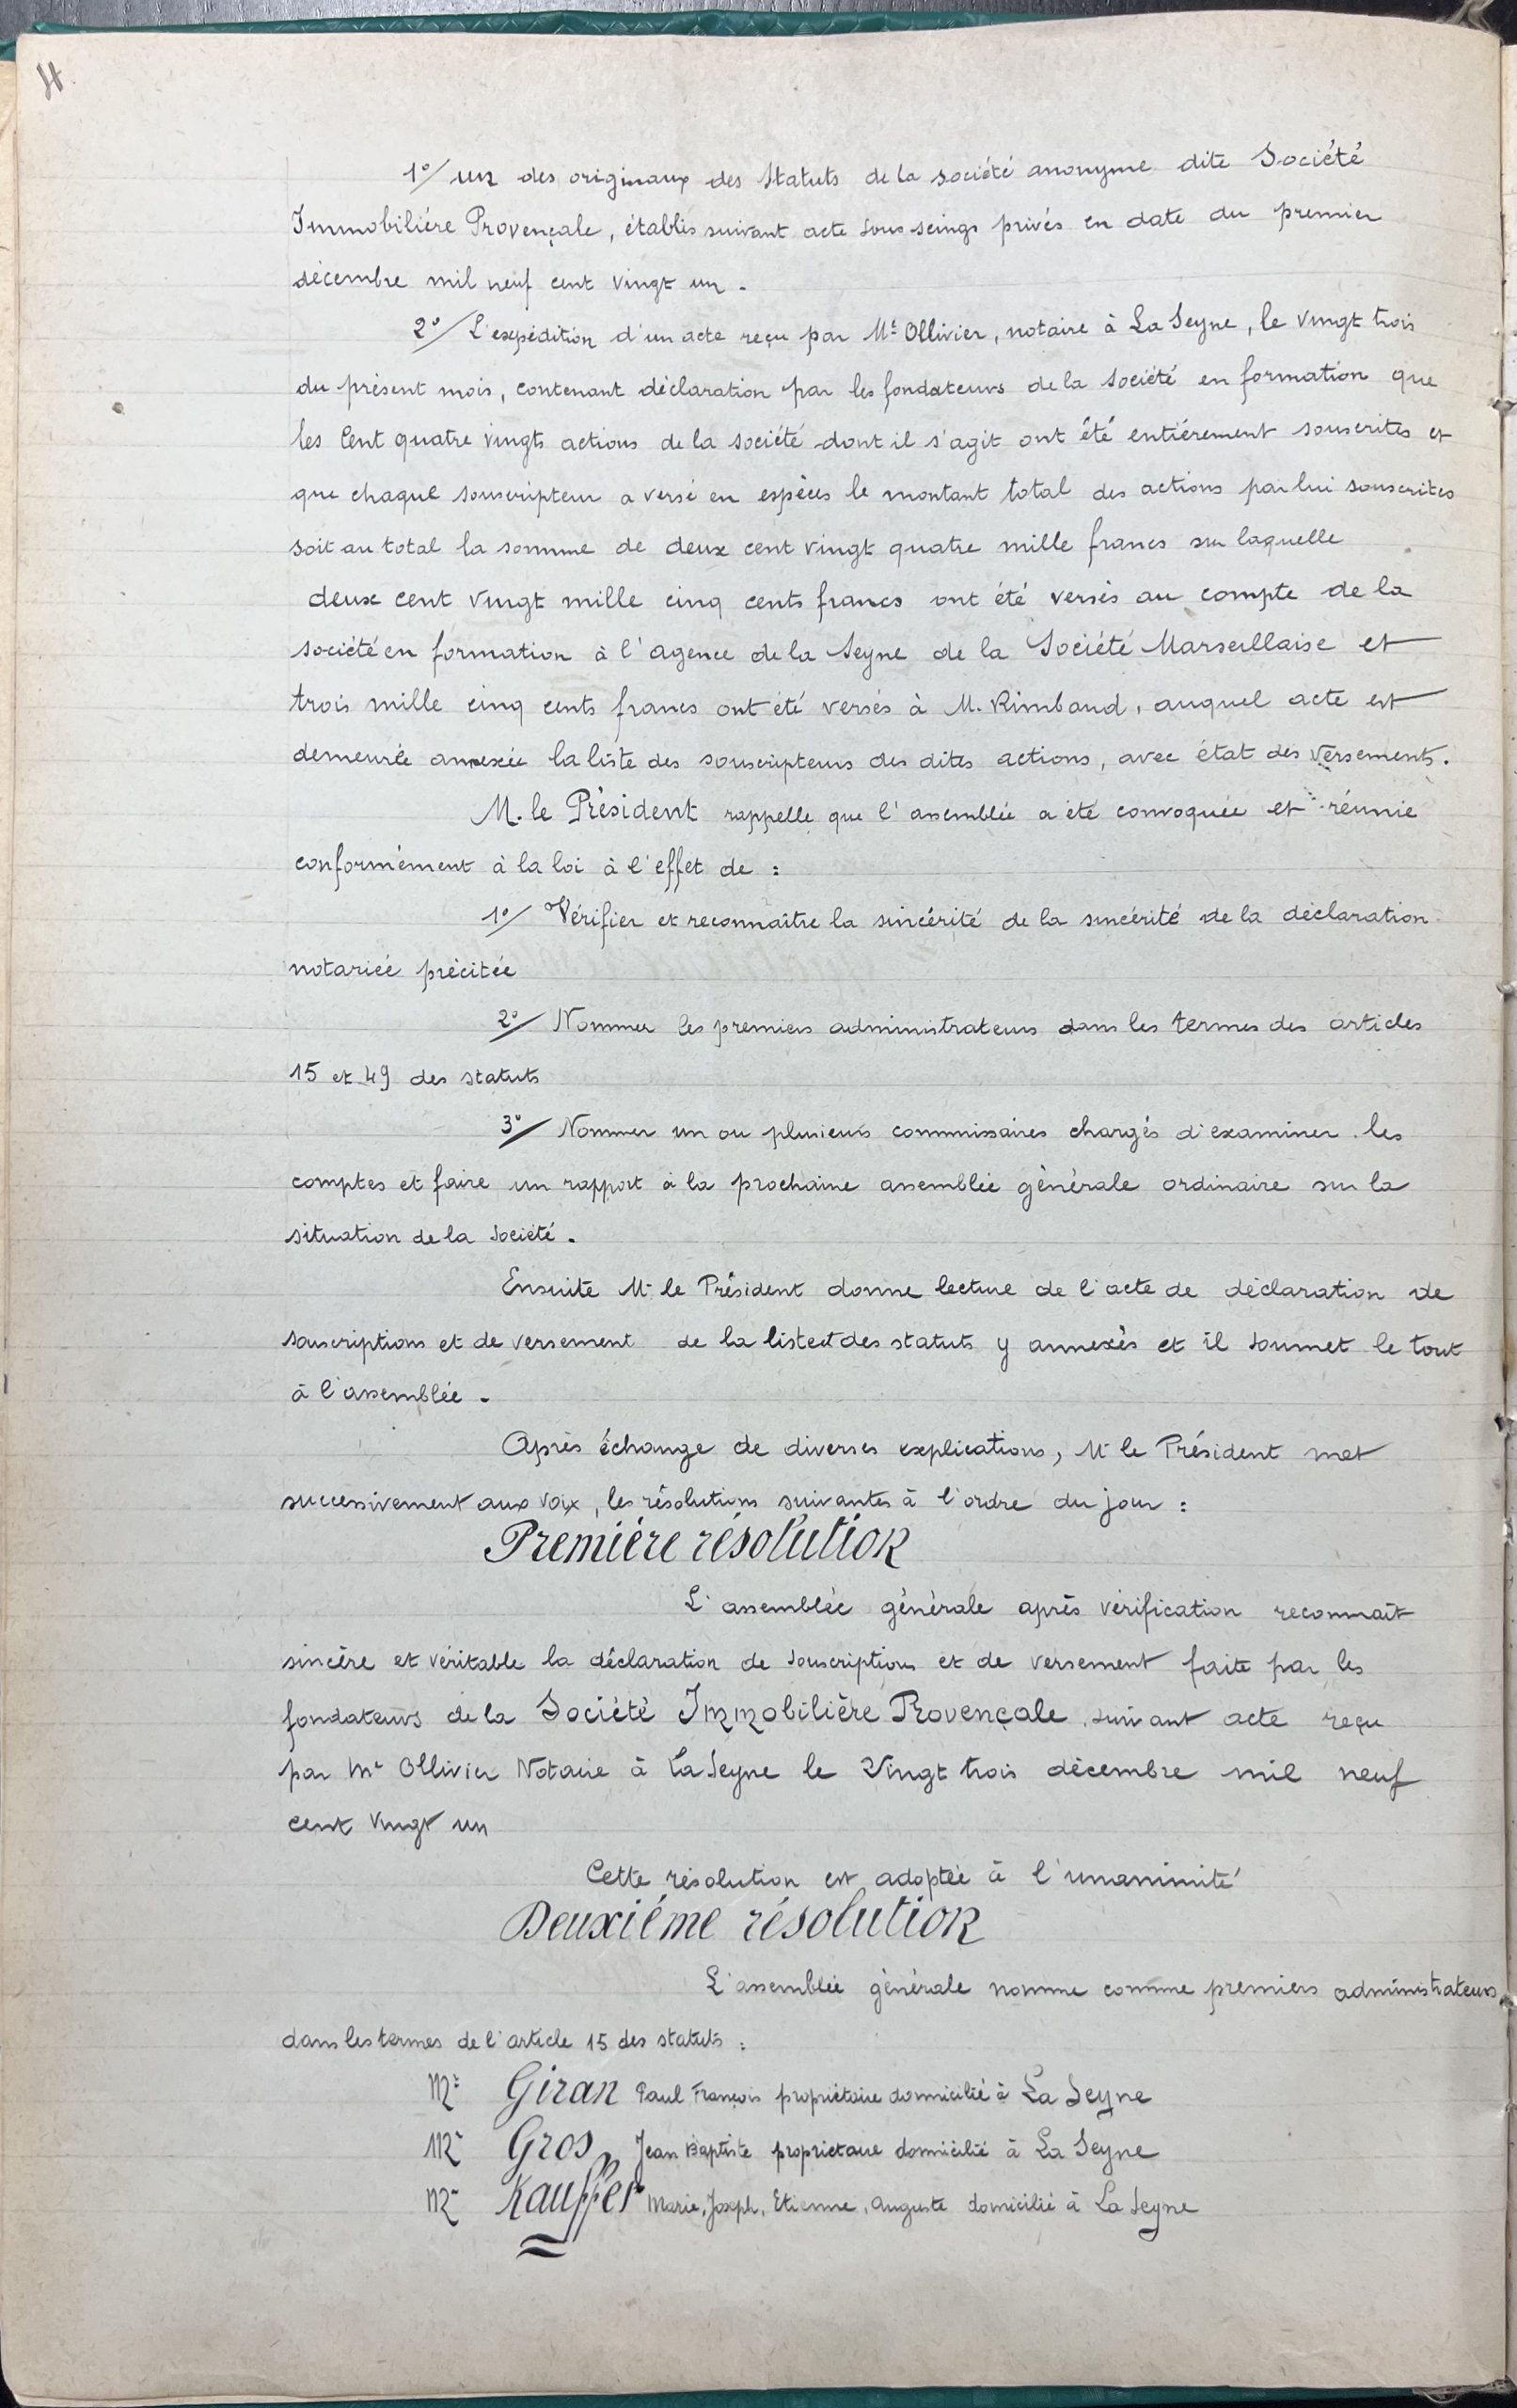 1°/ un des originaux des Statuts de la société anonyme dite Société
Immobiliére Provençale, établis suivant acte sous seings privés en date du premier
décembre mil neuf cent vingt un.
2°/ L'expédition d'un acte reçu par Me Ollivier, notaire à La Seyne, le vingt trois
du présent mois, contenant déclaration par les fondateurs de la société en formation que
les Cent quatre vingts actions de la société dont il s'agit ont été entiérement souscrites et
que chaque souscripteur a versé en espèces le montant total des actions par lui souscrites
soit au total la somme de deux cent vingt quatre mille francs sur laquelle
deux cent vingt mille cinq cents francs ont été versés au compte de la
société en formation à l'agence de la Seyne de la Société Marseillaise et
trois mille cinq cents francs ont été versés à M. Rimbaud, auquel acte est
demeurée annexée la liste des souscripteurs des dites actions, avec état des versements.
M. le Président rappelle que l'assemblée a été convoquée et réunie
conformément à la loi à l'effet de :
1°/ Vérifier et reconnaître la sincérité de la sincérité de la déclaration
notariée précitée
2°/ Nommer les premiers administrateurs dans les termes des articles
15 et 49 des statuts
3°/ Nommer un ou plusieurs commissaires chargés d'examiner les
comptes et faire un rapport à la prochaine assemblée générale ordinaire sur la
situation de la Société.
Ensuite Mr le Président donne lecture de l'acte de déclaration de
souscriptions et de versement de la liste et des statuts y annexés et il soumet le tout
à l'assemblée.
Après échange de diverses explications, Mr le Président met
successivement aux voix, les résolutions suivantes à l'ordre du jour :
Premiére résolution
L'assemblée générale après vérification reconnaît
sincère et véritable la déclaration de souscriptions et de versement faite par les
fondateurs de la Société Immobilière Provençale, suivant acte reçu
par Me Ollivier Notaire à La Seyne le Vingt trois décembre mil neuf
cent vingt un
Cette résolution est adoptée à l'unanimité
Deuxiéme résolution
L'assemblée générale nomme comme premiers administrateurs,
dans les termes de l'article 15 des statuts :
Mr Giran Paul François propriétaire domicilié à La Seyne
Mr Gros, Jean Baptiste propriétaire domicilié à La Seyne
Mr Kauffer Marie, Joseph, Etienne, Auguste domicilié à La Seyne